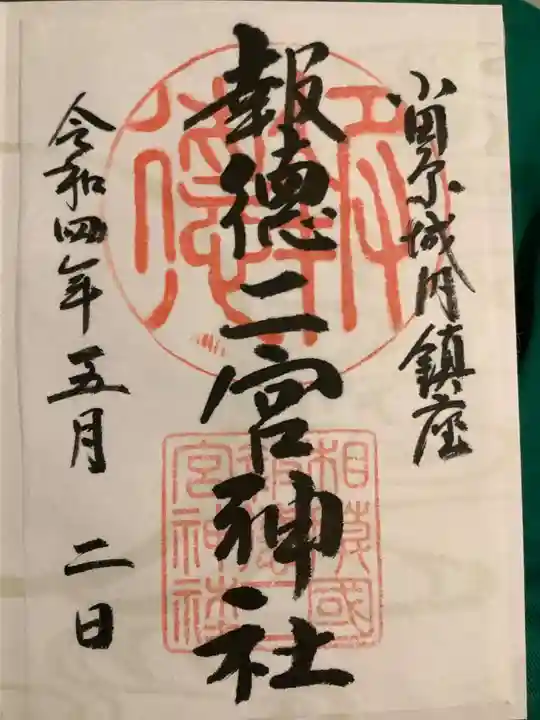 小田原城内鎮座
報徳二宮神社
令和四年五月二日
相模國
報徳二
宮神社